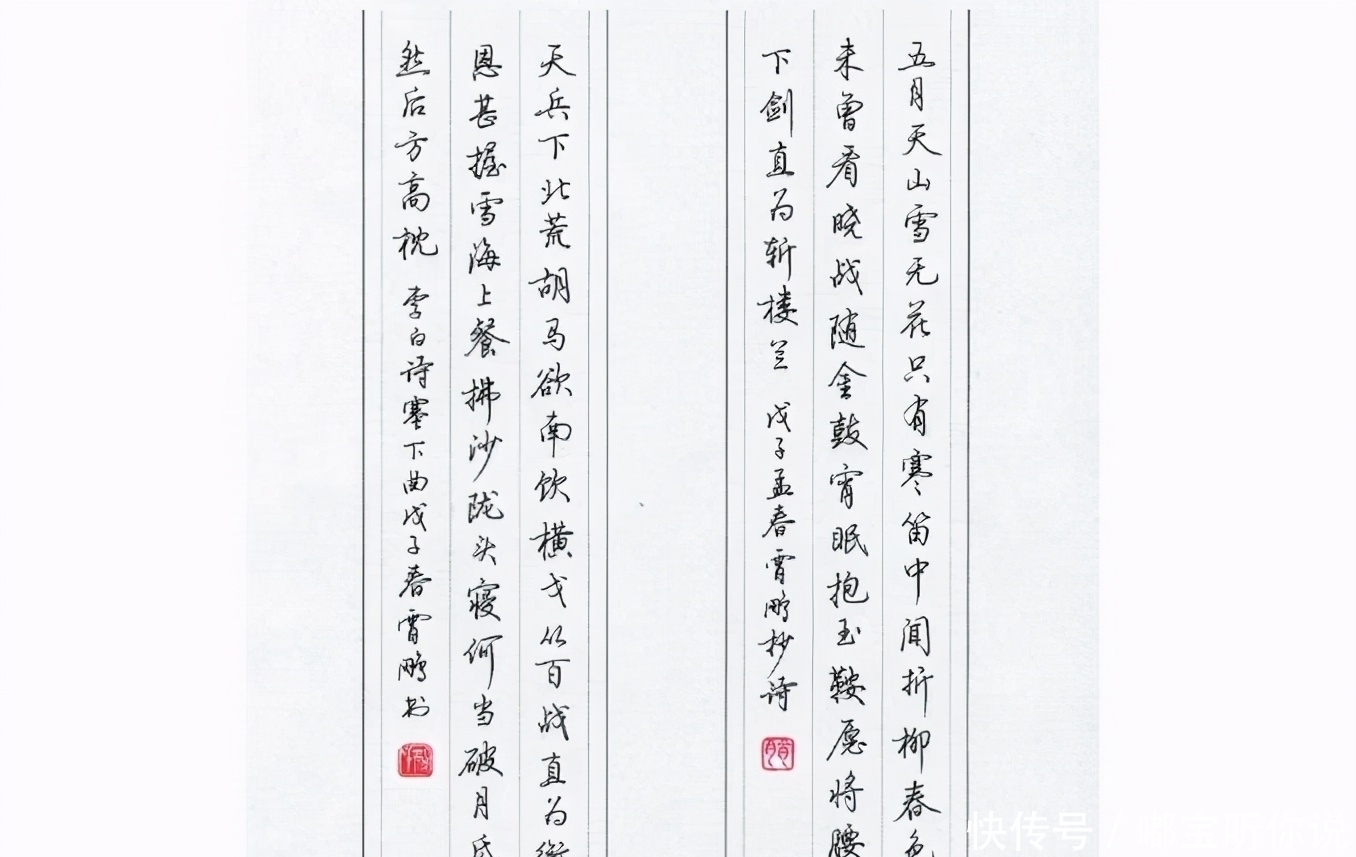 五月天山雪无花只有寒笛中闻折柳春色
未曾看晓战随金鼓宵眠抱玉鞍愿将腰
下剑直为斩楼兰 戊子孟春霄鹏抄诗
天兵下北荒胡马欲南饮横戈从百战直为衔
恩甚握雪海上餐拂沙陇头寝何当破月氏
然后方高枕 李白诗塞下曲戊子春霄鹏书
快传号 / 嘟宝听你说